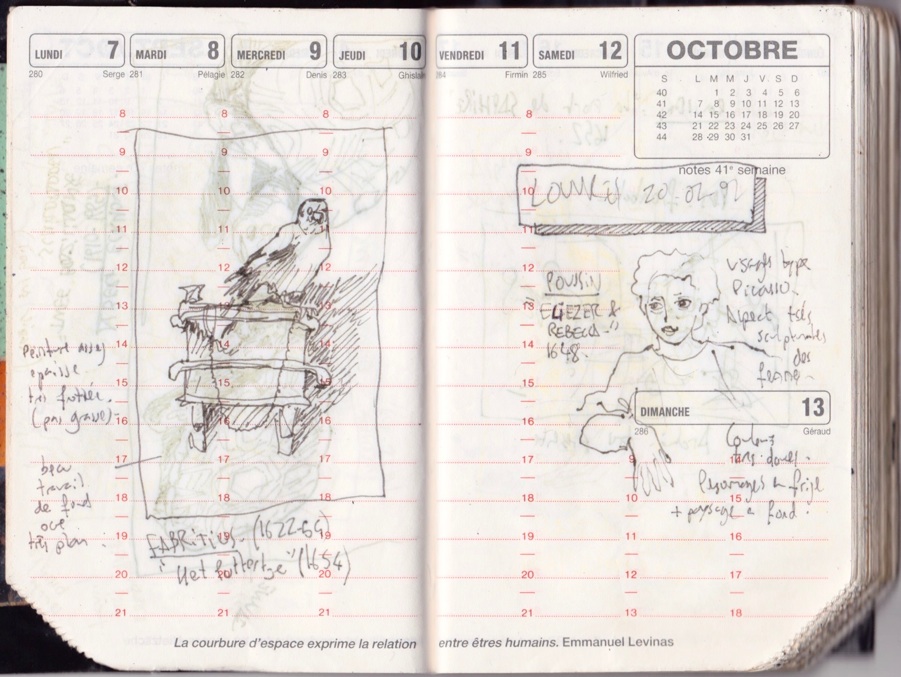 LUNDI 7
280 Serge
MARDI 8
281 Pélagie
MERCREDI 9
282 Denis
JEUDI 10
283 Ghislain
VENDREDI 11
284 Firmin
SAMEDI 12
285 Wilfried
OCTOBRE
S L M M J V S D
40 1 2 3 4 5 6
41 7 8 9 10 11 12 13
42 14 15 16 17 18 19 20
43 21 22 23 24 25 26 27
44 28 29 30 31
notes 41e semaine
8 8 8
9
10 10
11 11
12 12
13 13
14 14
15 15
16 16
17 17
18 18 18
19 19 19
20 20 20
21 21 21
Peinture assez
epaisse
très frottée.
(pas grasse)
beau
travail
de fond
ocre
très plan.
FABRITIUS. (1622-54)
"Het puttertje" (1654)
8
9
10
11
12
13
14
15
16
17
18
19
20
21
LOUVRE 20.02.92
POUSSIN
ELIEZER &
REBECCA
1648.
visages type
Picasso.
Aspect très
sculpturales
des
femmes
DIMANCHE 13
286 Géraud
Couleurs
très douces.
Personnages en frise
+ paysage en fond.
9
10 15
11 16
12 17
13 18
La courbure d'espace exprime la relation entre êtres humains. Emmanuel Levinas